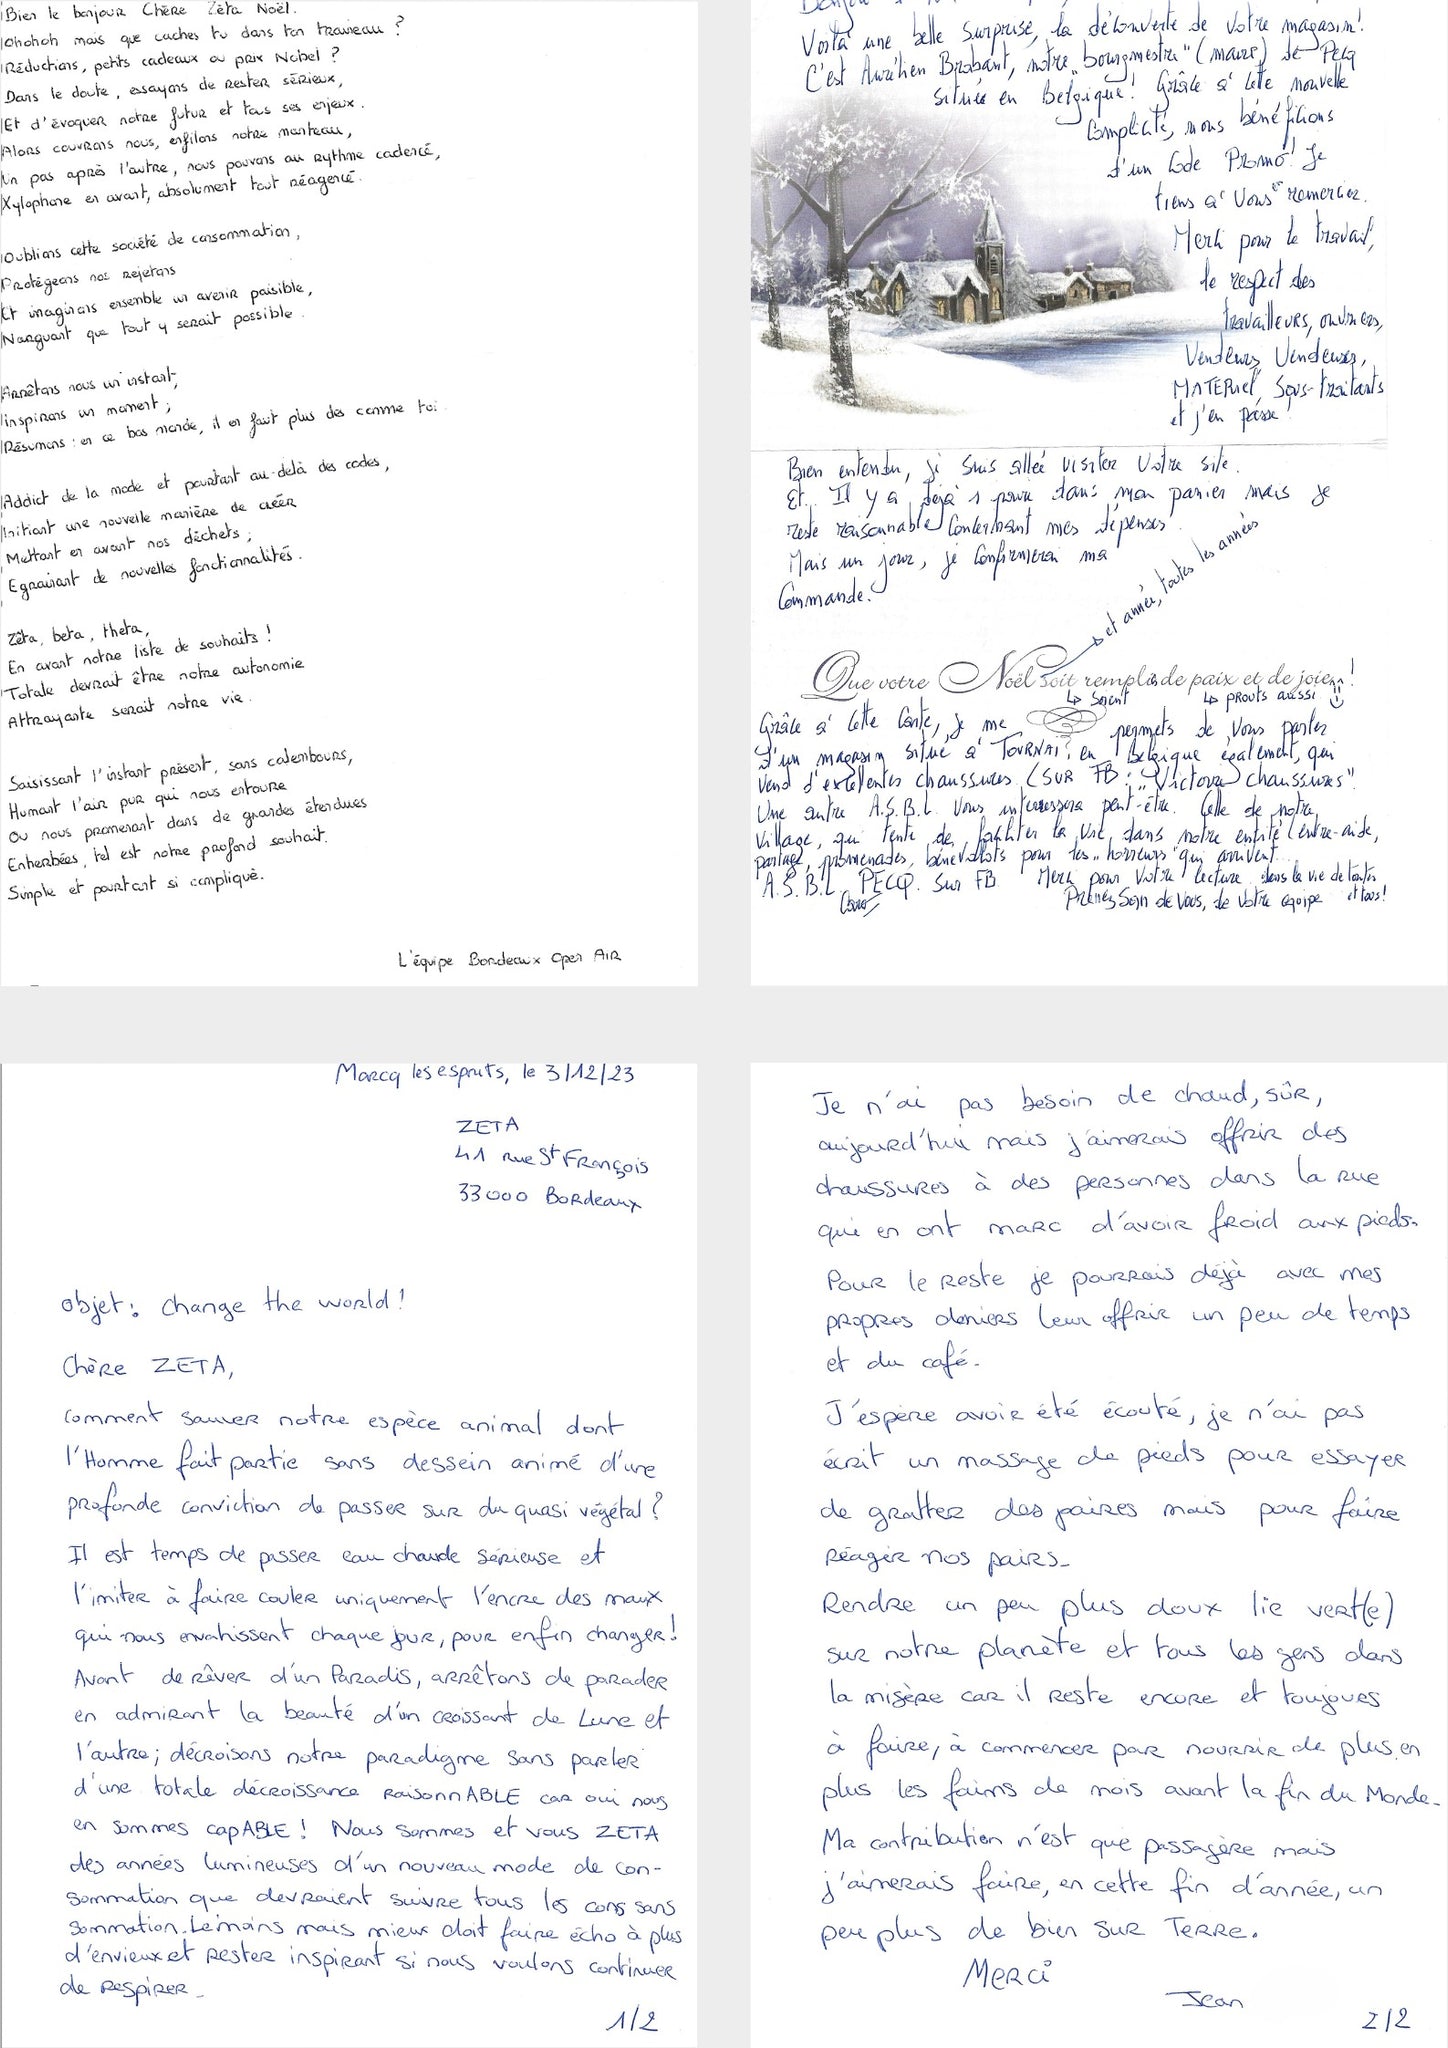 Bien le bonjour Chère Zèta Noël.
Ohohoh mais que caches tu dans ton traineau ?
Réductions, petits cadeaux ou prix Nobel ?
Dans le doute, essayons de rester sérieux,
Et d'évoquer notre futur et tous ses enjeux.
Alors couvrons nous, enfilons notre manteau,
Un pas après l'autre, nous pouvons au rythme cadencé,
Xylophone en avant, absolument tout réagencé.
Oublions cette société de consommation,
Protégeons nos rejetons
Et imaginons ensemble un avenir paisible,
Narguant que tout y serait possible.
Arrêtons nous un instant,
inspirons un moment ;
Résumons : en ce bas monde, il en faut plus des comme toi.
Addict de la mode et pourtant au-delà des codes,
Initiant une nouvelle manière de créer
Mettant en avant nos déchets ;
Egrainant de nouvelles fonctionnalités.
Zêta, beta, theta,
En avant notre liste de souhaits !
Totale devrait être notre autonomie
Attrayante serait notre vie.
Saisissant l'instant présent, sans calembours,
Humant l'air pur qui nous entoure
Ou nous promenant dans de grandes étendues
Enherbées, tel est notre profond souhait.
Simple et pourtant si compliqué.
L'équipe Bordeaux Open AIR
Voilà une belle surprise, la découverte de votre magasin!
C'est Aurélien Brabant, notre "bourgmestre" (maire) de Pecq
située en Belgique! Grâce à cette nouvelle
Complicité, nous bénéficions
d'un Code Promo! Je
tiens à vous remercier.
Merci pour le travail,
le respect des
travailleurs, ouvriers,
Vendeurs, Vendeuses,
MATERIEL, Sous-traitants
et j'en passe!
Bien entendu, je suis allée visiter votre site.
Et Il y a déjà 1 paire dans mon panier mais je
reste raisonnable concernant mes dépenses.
Mais un jour, je confirmerai ma
Commande.
→ et année, toutes les années
Que votre Noël soit rempli de paix et de joie !
↳ soient ↳ PROUTS AUSSI
Grâce à cette Carte, je me permets de vous parler
d'un magasin situé à TOURNAI, en Belgique également, qui
vend d'excellentes chaussures (SUR FB: "Victoria chaussures"
Une autre A.S.B.L. vous interessera peut-être. Celle de notre
village, qui tente de faciliter la vie dans notre entité (entre-aide,
partage, promenades, bénévolats pour les "horreurs" qui arrivent...
A.S.B.L. PECQ. Sur FB Merci pour votre lecture dans la vie de toutes
Prenez Soin de Vous, de votre équipe et tous!
Marcq les esprits, le 3/12/23
ZETA
41 rue St François
33000 Bordeaux
Objet: Change the world!
Chère ZETA,
Comment sauver notre espèce animal dont
l'Homme fait partie sans dessein animé d'une
profonde conviction de passer sur du quasi végétal?
Il est temps de passer eau chaude sérieuse et
l'imiter à faire couler uniquement l'encre des maux
qui nous envahissent chaque jour, pour enfin changer!
Avant de rêver d'un Paradis, arrêtons de parader
en admirant la beauté d'un croissant de Lune et
l'autre; décroisons notre paradigme sans parler
d'une totale décroissance raisonnABLE car oui nous
en sommes capABLE! Nous sommes et vous ZETA
des années lumineuses d'un nouveau mode de con-
sommation que devraient suivre tous les cons sans
sommation. Le moins mais mieux doit faire écho à plus
d'envieux et rester inspirant si nous voulons continuer
de respirer.
1/2
Je n'ai pas besoin de chaud, sûr,
aujourd'hui mais j'aimerais offrir des
chaussures à des personnes dans la rue
qui en ont marc d'avoir froid aux pieds.
Pour le reste je pourrais déjà avec mes
propres deniers leur offrir un peu de temps
et du café.
J'espère avoir été écouté, je n'ai pas
écrit un massage de pieds pour essayer
de gratter des paires mais pour faire
réagir nos pairs.
Rendre un peu plus doux lie vert(e)
sur notre planète et tous les gens dans
la misère car il reste encore et toujours
à faire, à commencer par nourrir de plus en
plus les faims de mois avant la fin du Monde.
Ma contribution n'est que passagère mais
j'aimerais faire, en cette fin d'année, un
peu plus de bien sur Terre.
Merci
Jean
2/2